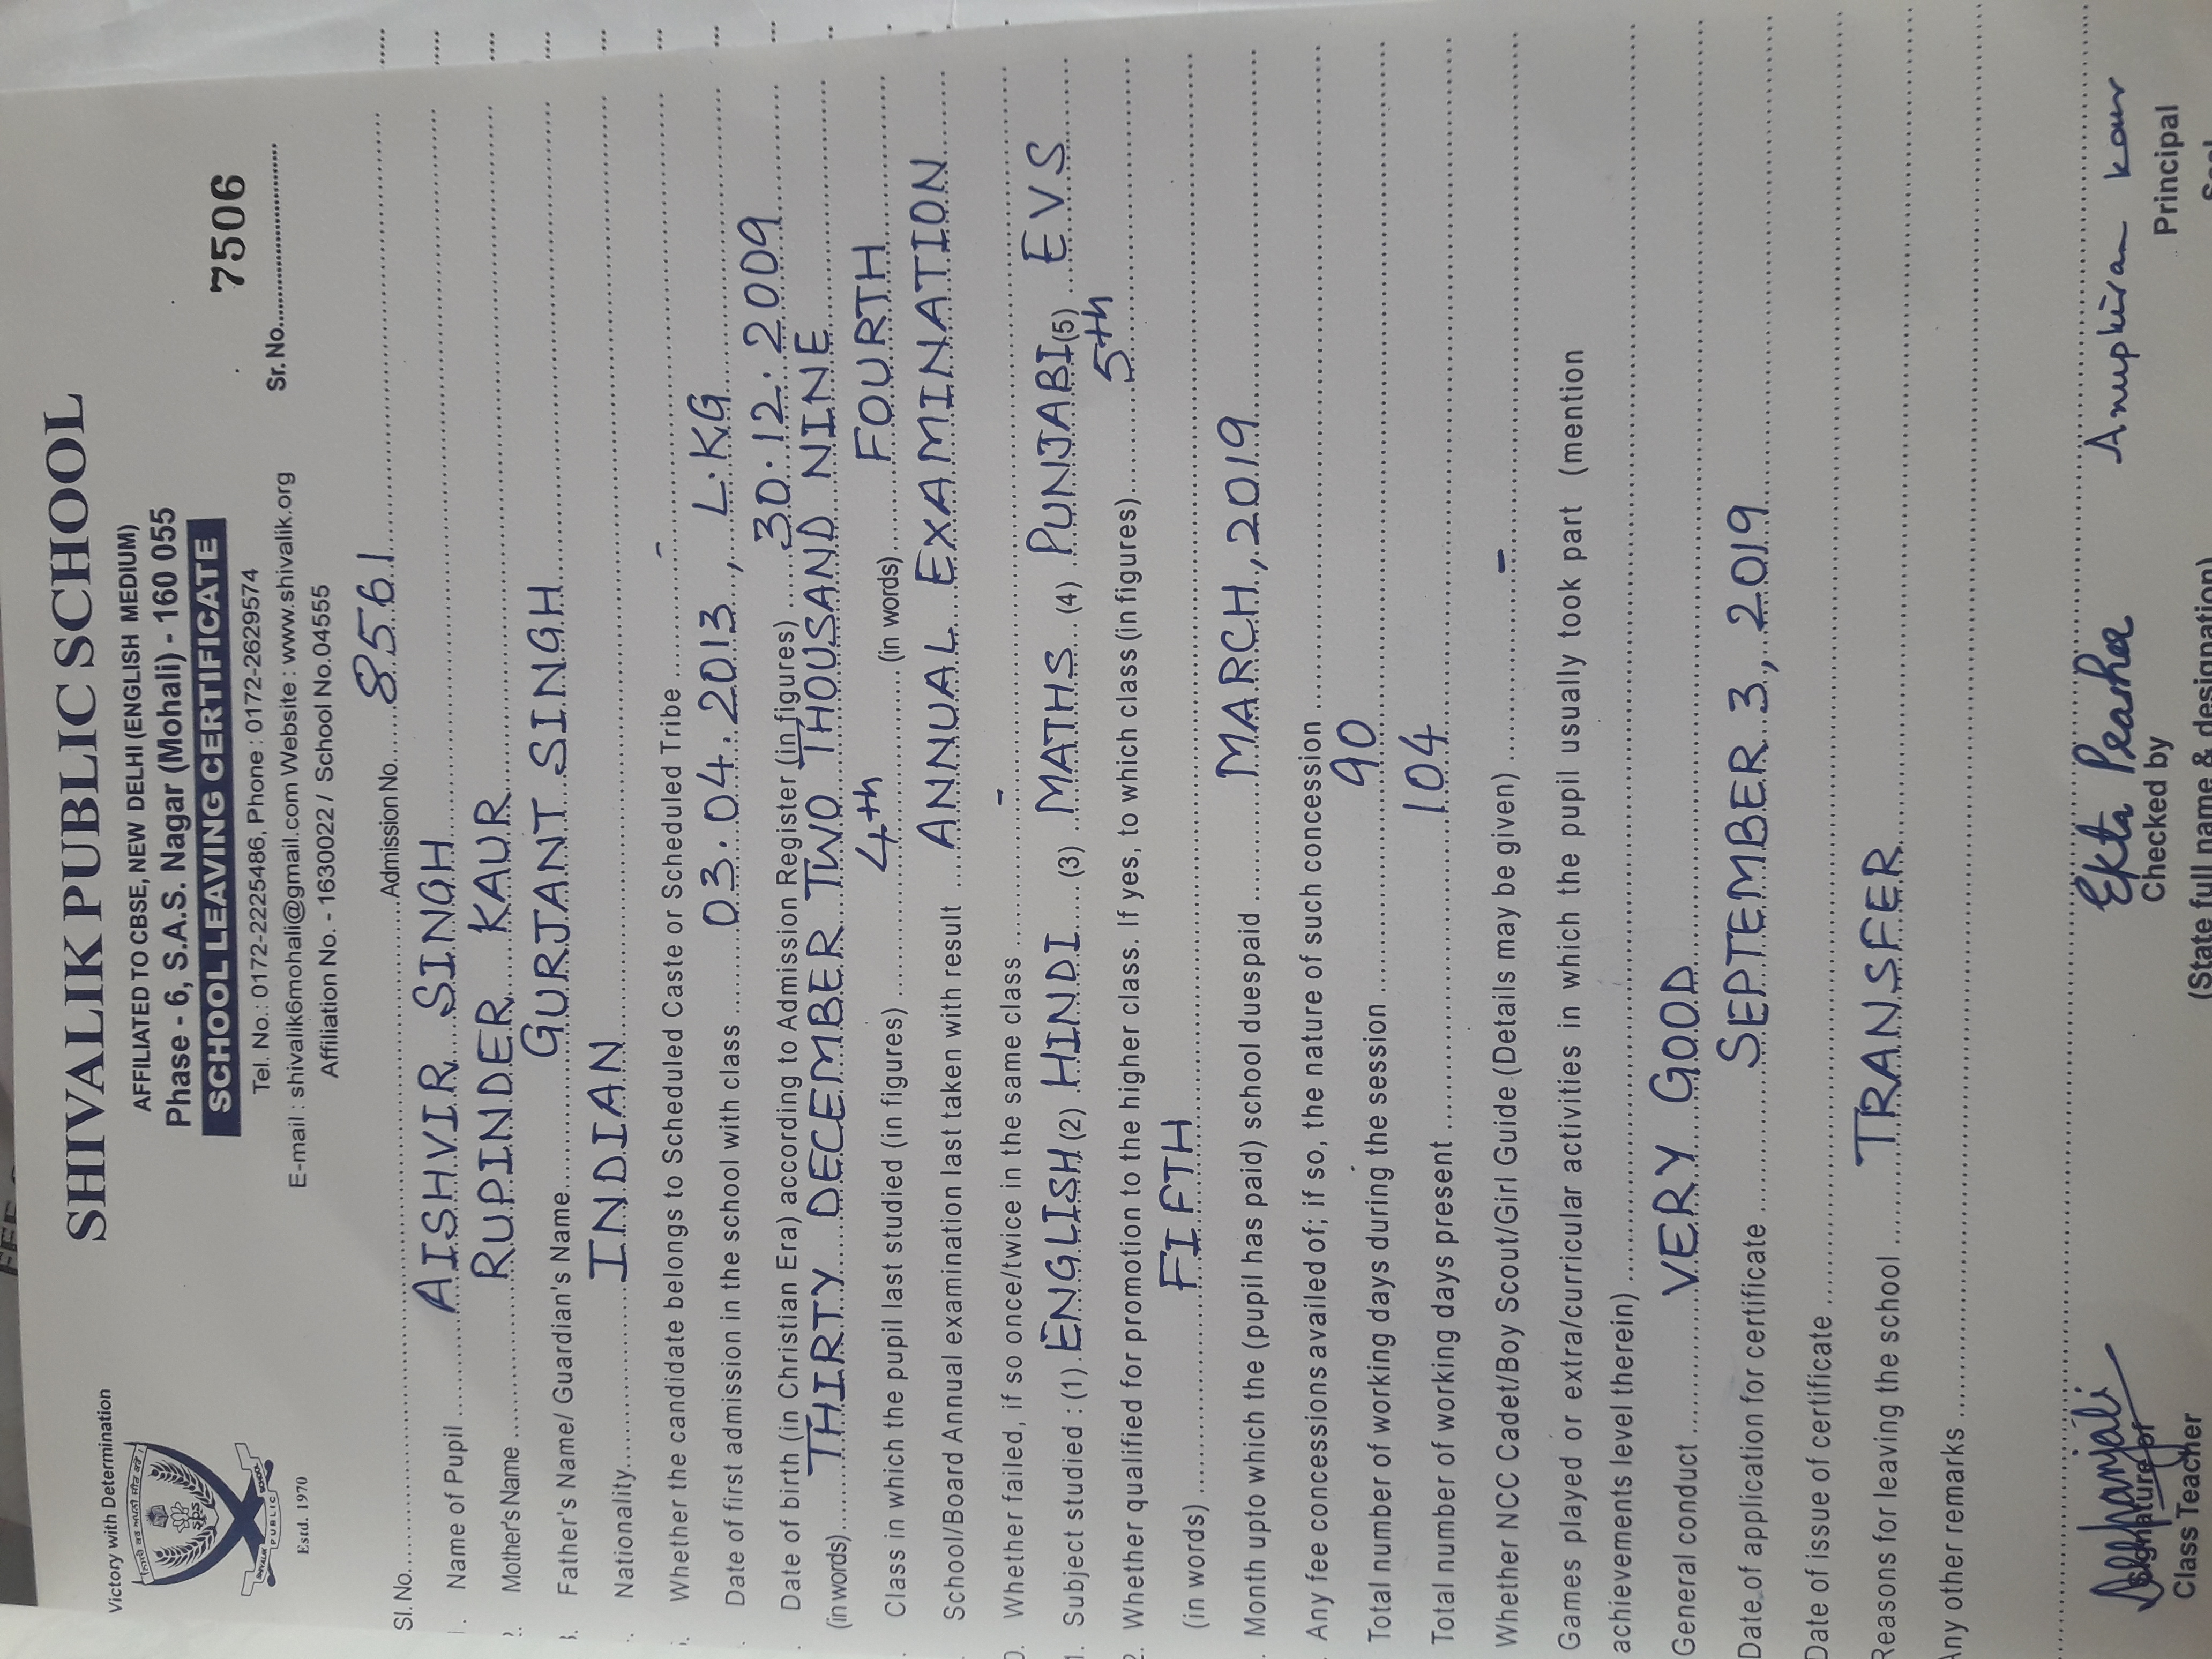 Victory with Determination
SHIVALIK PUBLIC SCHOOL
AFFILIATED TO CBSE, NEW DELHI (ENGLISH MEDIUM)
Phase - 6, S.A.S. Nagar (Mohali) - 160 055
SCHOOL LEAVING CERTIFICATE
7506
Tel. No.: 0172-2225486, Phone : 0172-2629574
Sr.No.
E-mail : shivalik6mohali@gmail.com Website : www.shivalk.org
Estd. 1970
Affiliation No. - 1630022 / School No.04555
SPS
SHIVALIK PUBLIC SCHOOL
Sl.No. Admission No. 8561
Name of Pupil AISHVIR SINGH
Mother's Name RUPINDER KAUR
Father's Name/ Guardian's Name GURJANT SINGH
Nationality INDIAN
Whether the candidate belongs to Scheduled Caste or Scheduled Tribe -
Date of first admission in the school with class 03.04.2013, L.KG
Date of birth (in Christian Era) according to Admission Register (In figures) 30.12.2009
(in words) THIRTY DECEMBER TWO THOUSAND NINE
Class in which the pupil last studied (in figures) 4th (in words) FOURTH
School/Board Annual examination last taken with result ANNUAL EXAMINATION
Whether failed, if so once/twice in the same class -
Subject studied : (1) ENGLISH (2) HINDI (3) MATHS (4) PUNJABI (5) EVS
Whether qualified for promotion to the higher class. If yes, to which class (in figures) 5th
(in words) FIFTH
Month upto which the (pupil has paid) school duespaid MARCH, 2019
Any fee concessions availed of; if so, the nature of such concession
Total number of working days during the session 90
Total number of working days present 104
Whether NCC Cadet/Boy Scout/Girl Guide (Details may be given) -
Games played or extra/curricular activities in which the pupil usually took part (mention
achievements level therein)
General conduct VERY GOOD
Date of application for certificate SEPTEMBER 3, 2019
Date of issue of certificate
Reasons for leaving the school TRANSFER
Any other remarks
Ekta Prasher Anupkiran kaur
Signature of Checked by Principal
Class Teacher (State full name & designation)